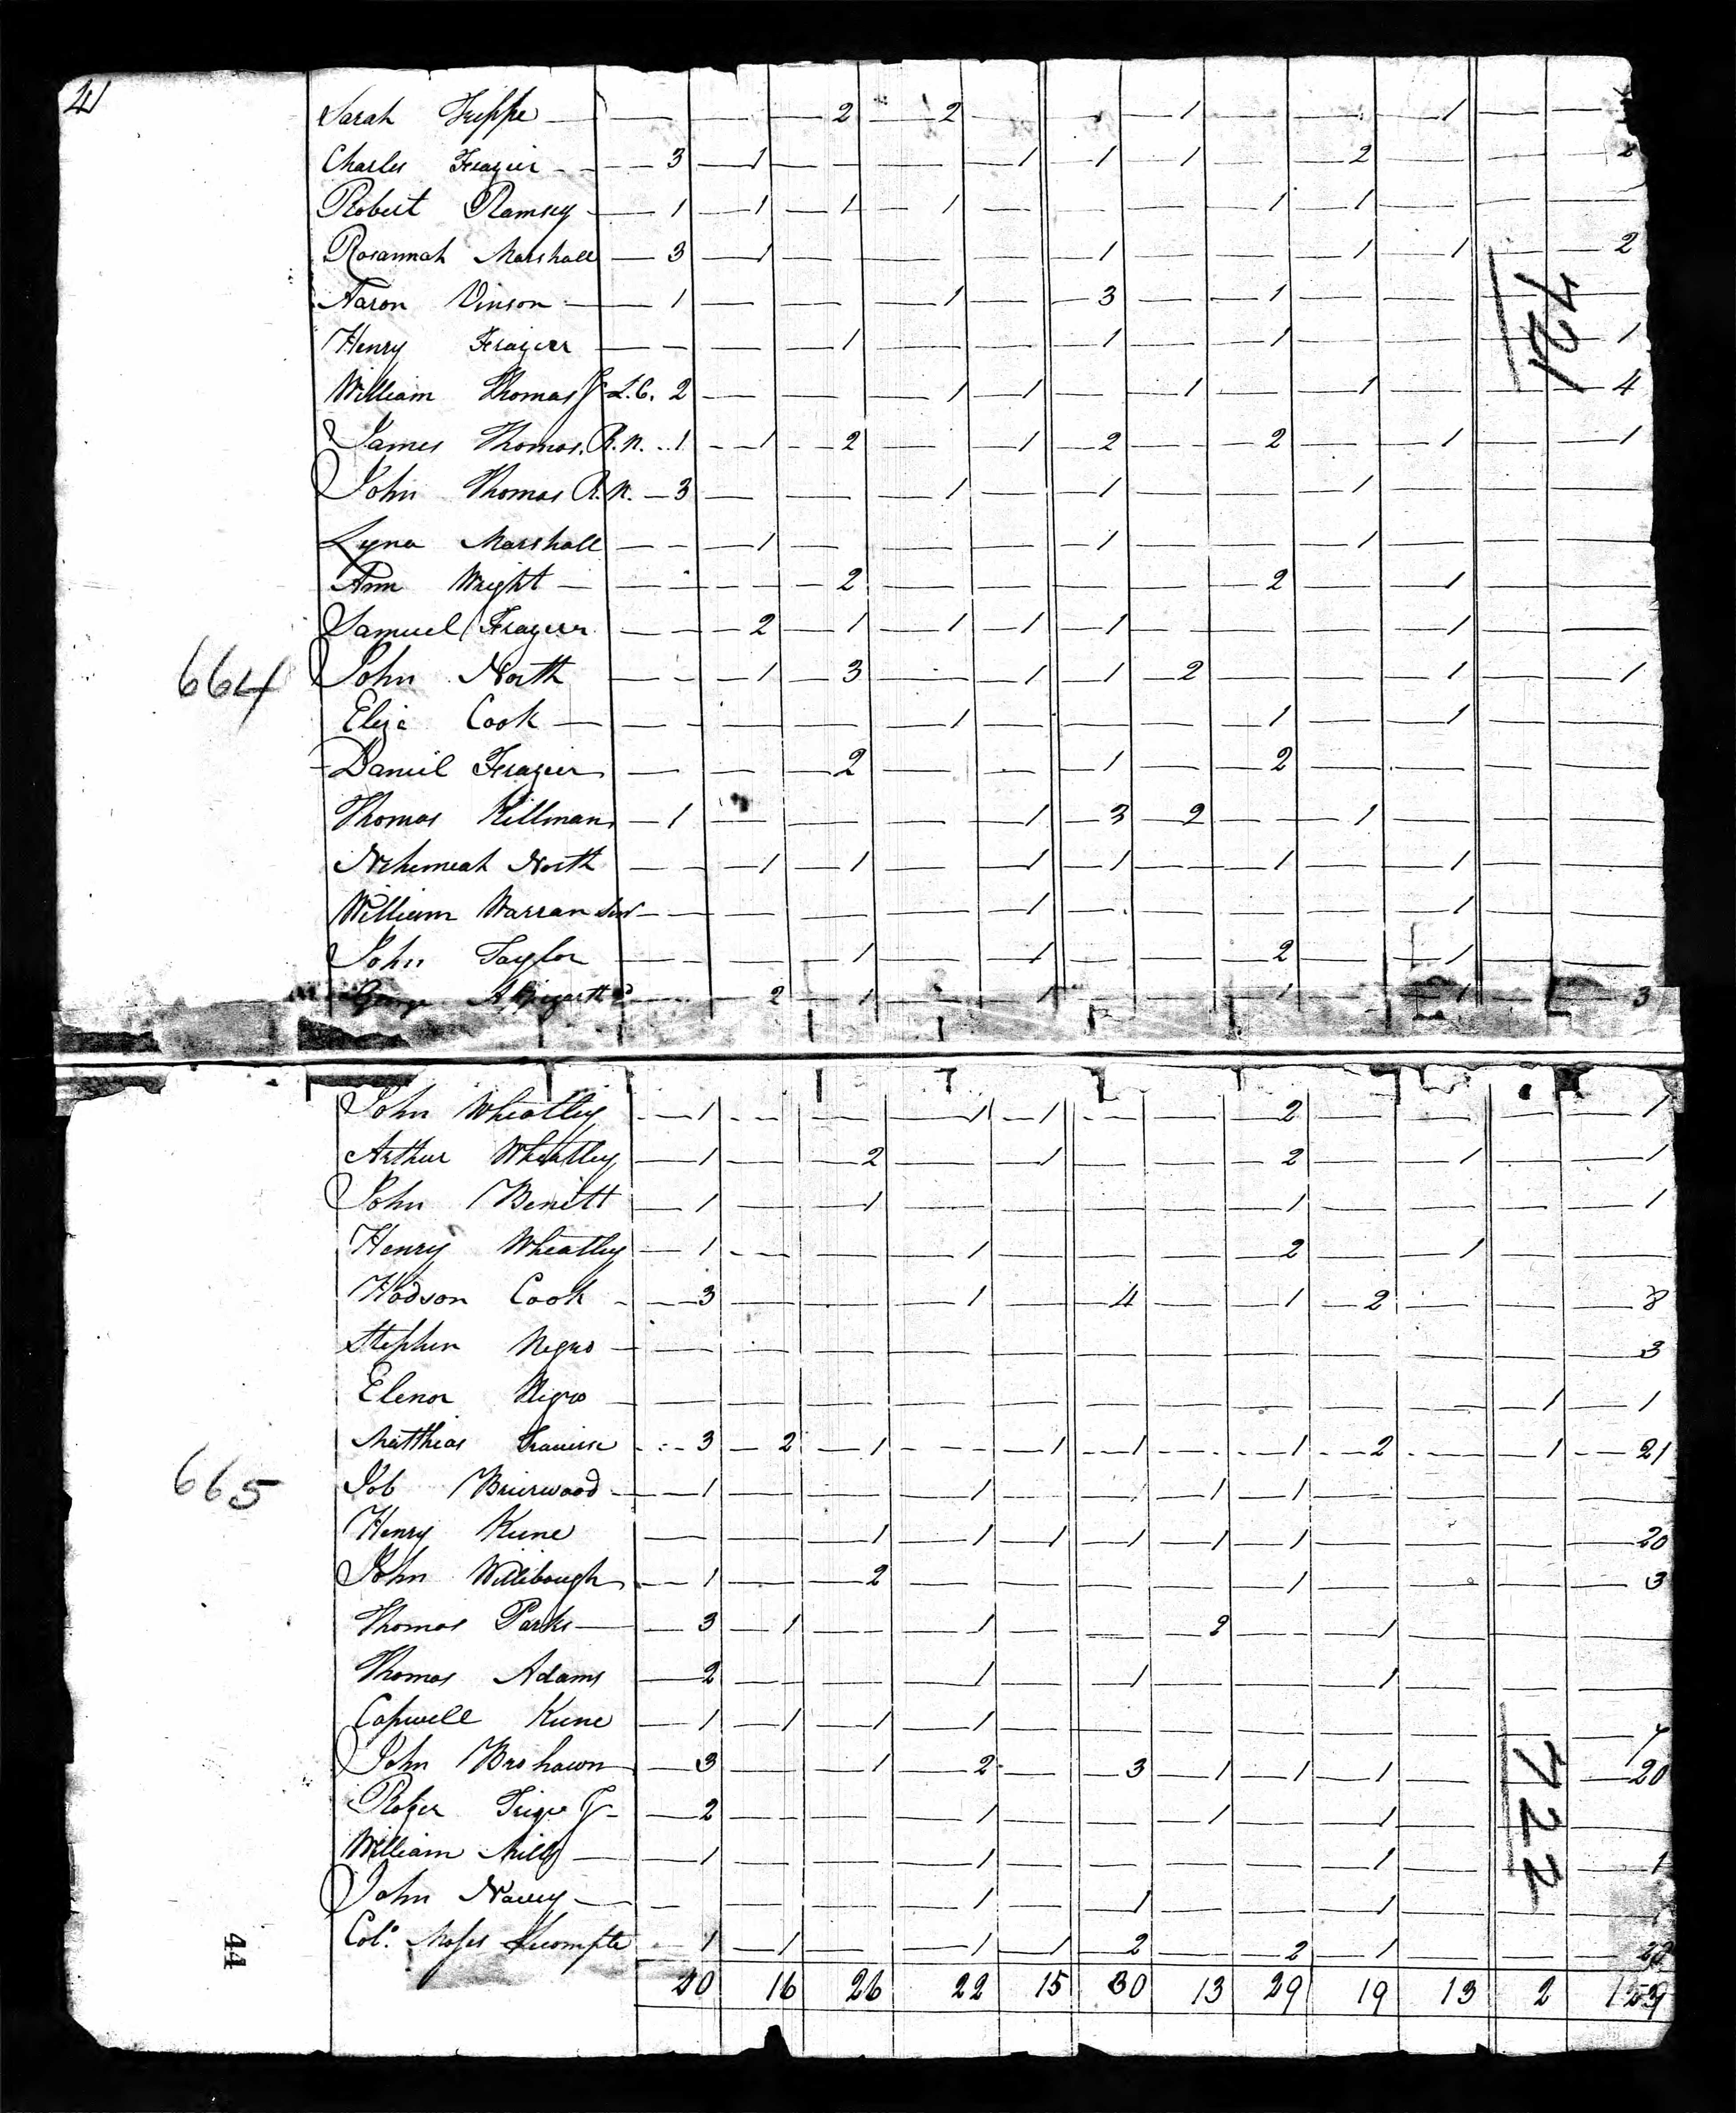 41
Sarah Trippe — — — 2 — 2 — — — 1 — — 1 — —
Charles Frazier — 3 — 1 — — — 1 — 1 — 1 — — 2 — — — 2
Robert Ramsey — 1 — 1 — 1 — 1 — — — — 1 — 1 — — —
Rosannah Marshall — 3 — 1 — — — — 1 — — — 1 — 1 — — 2
Aaron Vinson — 1 — — — 1 — — 3 — — 1 — — — —
Henry Frazier — — — 1 — — — 1 — — 1 — — — — 1
William Thomas Jr L.C. 2 — — — 1 — 1 — — 1 — — 1 — — — 4
James Thomas R.N. 1 — 1 — 2 — — 1 — 2 — — 2 — — 1 — — 1
John Thomas R.N. — 3 — — — 1 — — 1 — — — 1 — — —
Lyna Marshall — — — 1 — — — — 1 — — — 1 — — —
Ann Wright — — — — 2 — — — — — 2 — — 1 — —
Samuel Frazier — — 2 — 1 — 1 — 1 — 1 — — — — 1 — —
664
John North — — 1 — 3 — — 1 — 1 — 2 — — — 1 — — 1
Eliz Cook — — — — — 1 — — — — 1 — — 1 — —
Daniel Frazier — — — 2 — — — 1 — — 2 — — — — —
Thomas Killman — 1 — — — — 1 — 3 — 2 — — 1 — — —
Nehemiah North — — 1 — 1 — — 1 — 1 — — 1 — — 1 — —
William Warran Snr — — — — — 1 — — — — — 1 — —
John Taylor — — — 1 — — 1 — — — 2 — — 1 — —
George — 2 — 1 — — 1 — — — 1 — — 1 — — 3
721
John Wheatley — 1 — — — 1 — 1 — — — 2 — — — — 1
Arthur Wheatley — 1 — — 2 — — 1 — — — 2 — — 1 — — 1
John Benitt — 1 — — 1 — — — — — 1 — — — — 1
Henry Wheatley — 1 — — — 1 — — — — 2 — — 1 — —
Hodson Cook — 3 — — — 1 — — 4 — — 1 — 2 — — — 8
Stephen Negro — — — — — — — — — — — — 3
Elenor Negro — — — — — — — — — — — 1 — 1
Matthias Traverse — 3 — 2 — 1 — — 1 — 1 — — 1 — 2 — — 1 — 21
665
Job Brierwood — 1 — — — 1 — — 1 — 1 — 1 — — — —
Henry Kune — — — 1 — 1 — 1 — 1 — 1 — 1 — — — — 20
John Willibough — 1 — — 2 — — — — — 1 — — — — 3
Thomas Parks — 3 — 1 — — 1 — — — 2 — — 1 — — —
Thomas Adams — 2 — — — 1 — — 1 — — — 1 — — —
Capwell Kune — 1 — 1 — 1 — 1 — — — — — — — 7
John Brohawn — 3 — — 1 — 2 — — 3 — 1 — 1 — 1 — — — 20
Roger Jr — 2 — — — 1 — — — 1 — — 1 — — —
William Mills — 1 — — — 1 — — — — — 1 — — — 1
John Navey — — — — 1 — — 1 — — — 1 — — —
Col. Moses Lecompte — 1 — 1 — — 1 — 1 — 2 — — 2 — 1 — — —
40 16 26 22 15 30 13 29 19 13 2 159
722
44